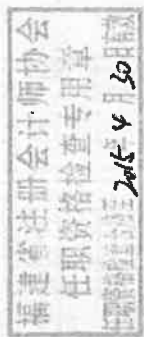 福建省注册会计师协会
任职资格检查专用章
2015 4 月 30 日